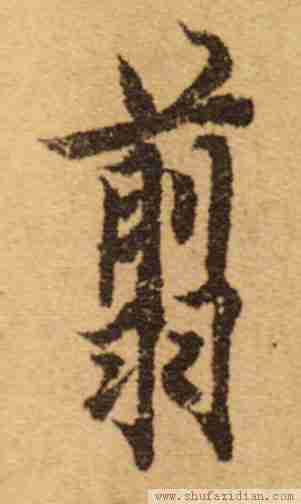 翦
www.shufazidian.com